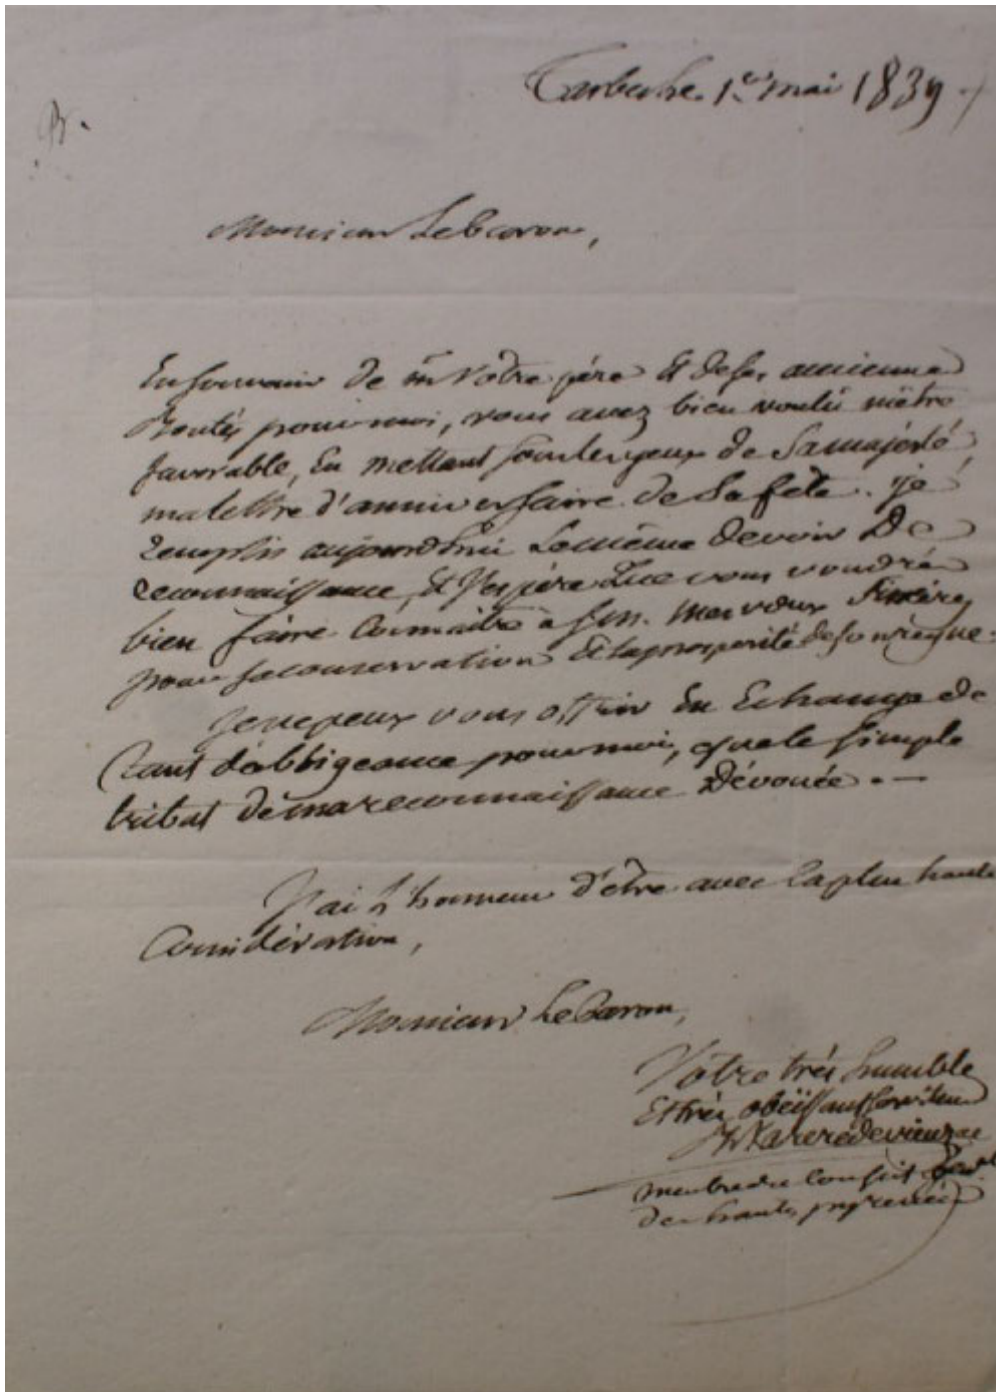 Tarbes le 1er mai 1839
B.
Monsieur Lebaron,
En souvenir de mr votre père et deses anciennes
Bontés pour moi, vous avez bien voulu m'être
favorable, En mettant sous les yeux de Samajesté
malettre d'anniversaire de Sa fête. je
remplis aujourd'hui Lemême devoir De
reconnaissance, et J'espère que vous voudrés
bien faire Connaitre à S. m. mes vœux Sincères
pour saconservation et laprosperité deson regne.
Jenepeux vous offrir En Echange de
tant d'obligeance pour moi, quele simple
tribut demareconnaissance Dévouée. —
J'ai L'honneur d'être avec laplus haute
Considération,
Monsieur Le Baron,
Vôtre très humble
Ettrès obéissant Serviteur
Barère de vieuzac
membre du Conseil
des hautes pyrenées